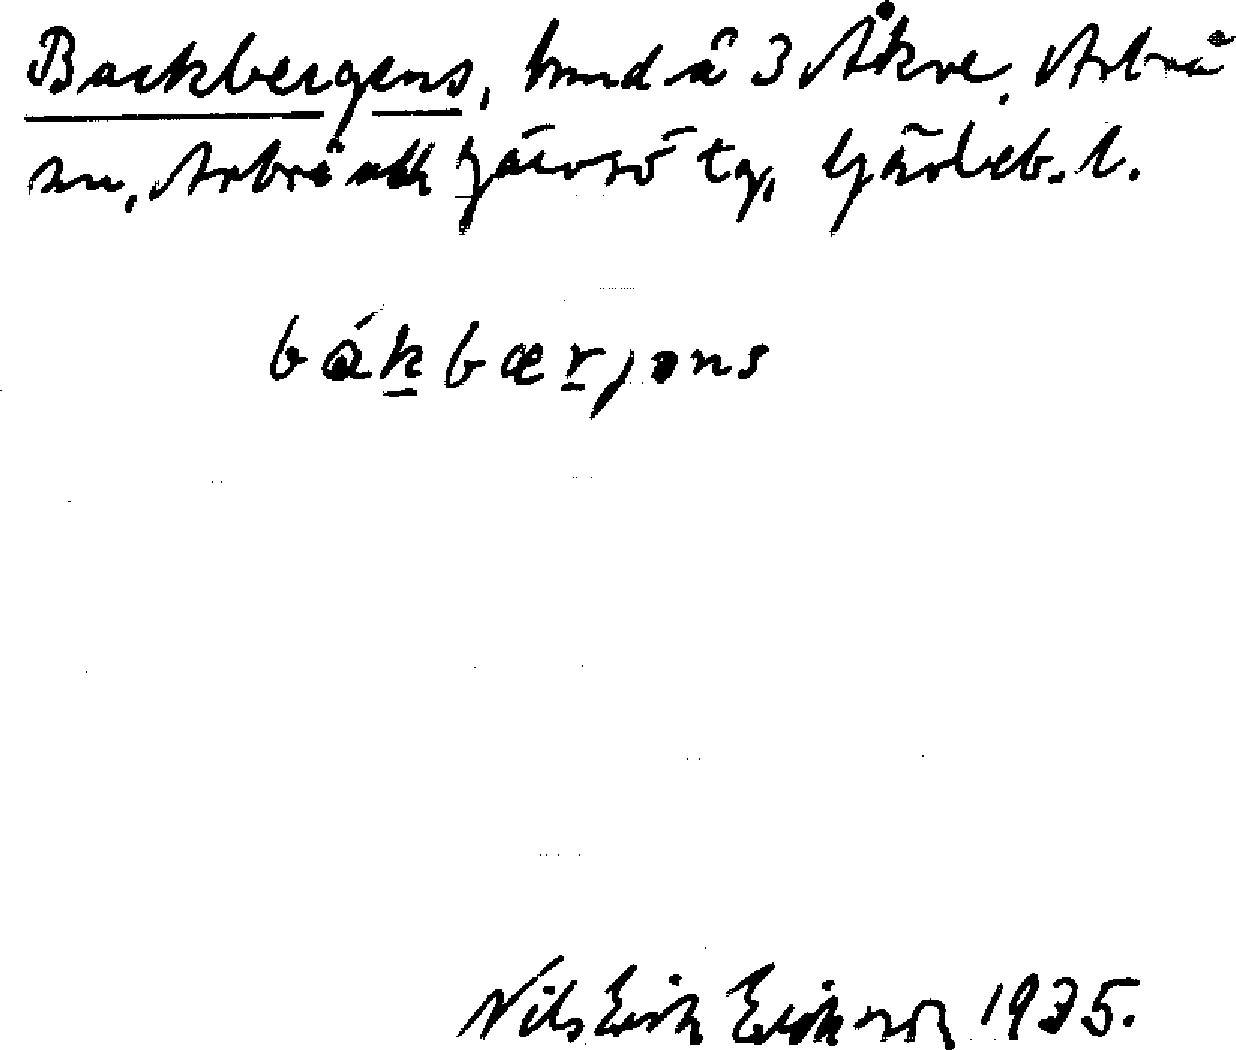 Backbergens, hmd å 3 Åkre, Arbrå
sn, Arbrå och Järvsö tg, Gävleb. l.
bákbærjəns
Nils Erik Erikson 1935.